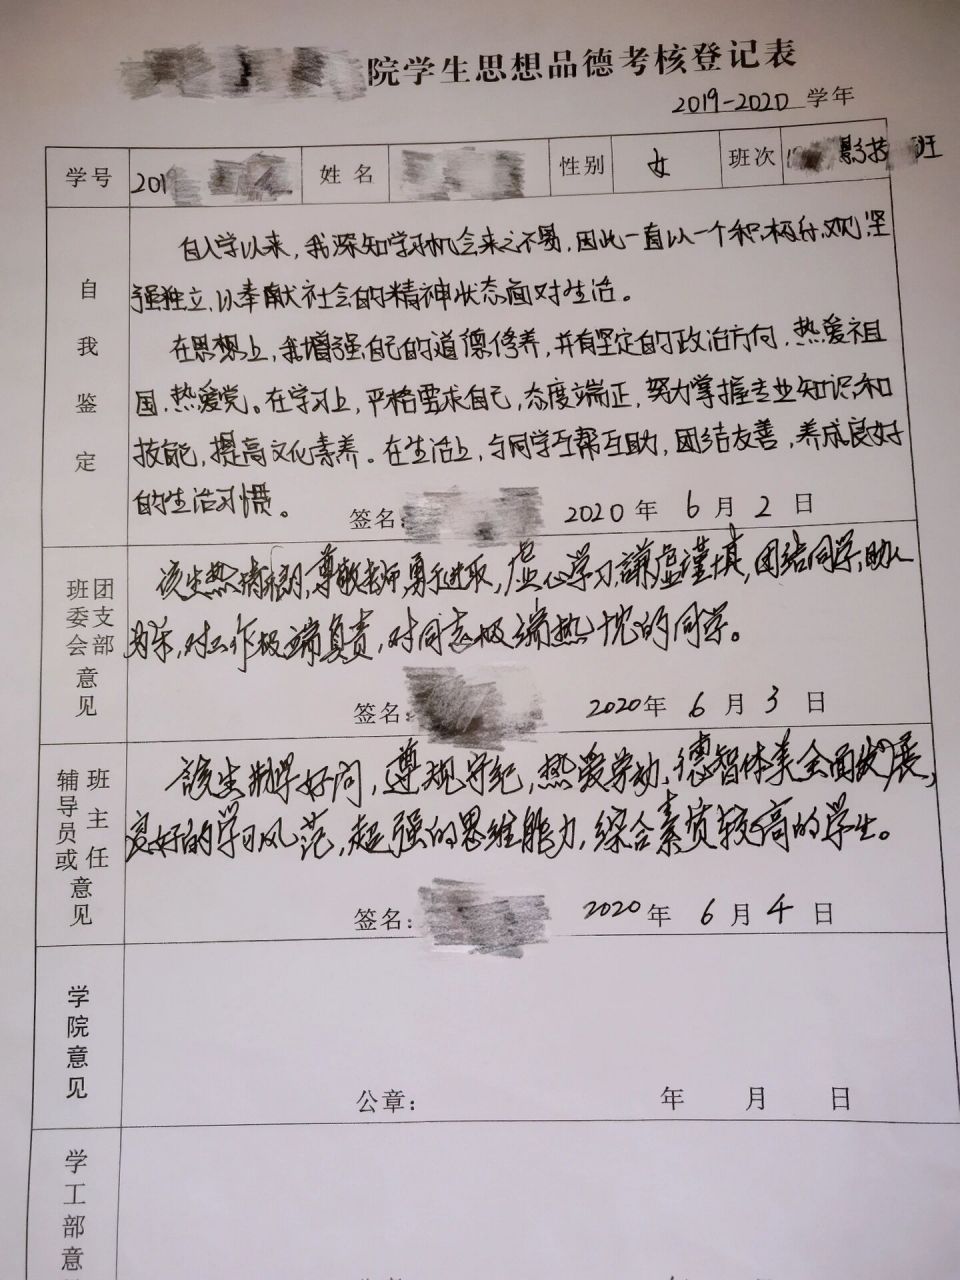 院学生思想品德考核登记表
2019-2020 学年
学号 201 姓名 性别 女 班次 影技 班
自我鉴定
自入学以来,我深知学习机会来之不易,因此一直以一个积极乐观,坚
强独立,以奉献社会的精神状态面对生活。
在思想上,我增强自己的道德修养,并有坚定的政治方向,热爱祖
国,热爱党。在学习上,严格要求自己,态度端正,努力掌握专业知识和
技能,提高文化素养。在生活上,与同学互帮互助,团结友善,养成良好
的生活习惯。
签名: 2020 年 6 月 2 日
班委会团支部意见
该生热情,尊敬老师,勇于进取,虚心学习,謙虚谨慎,团结同学,助人
为乐,对工作极端负责,对同志极端热忱的同学。
签名: 2020 年 6 月 3 日
辅导员或班主任意见
該生勤学好问,遵规守纪,热爱劳动,德智体美全面发展,
良好的学习风范,超强的思维能力,综合素质较高的学生。
签名: 2020 年 6 月 4 日
学院意见
公章: 年 月 日
学工部意